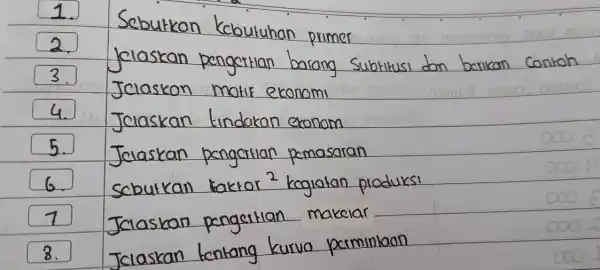 1. Sebutkan kebutuhan primer
2. Jelaskan pengertian barang Subtitusi dan berikan contoh
3. Jelaskan motif ekonomi
4. Jelaskan tindakan ekonom
5. Jelaskan pengertian pemasaran
6. Sebutkan faktor ² kegiatan produksi
7 Jelaskan pengertian makelar
8. Jelaskan tentang kurva permintaan